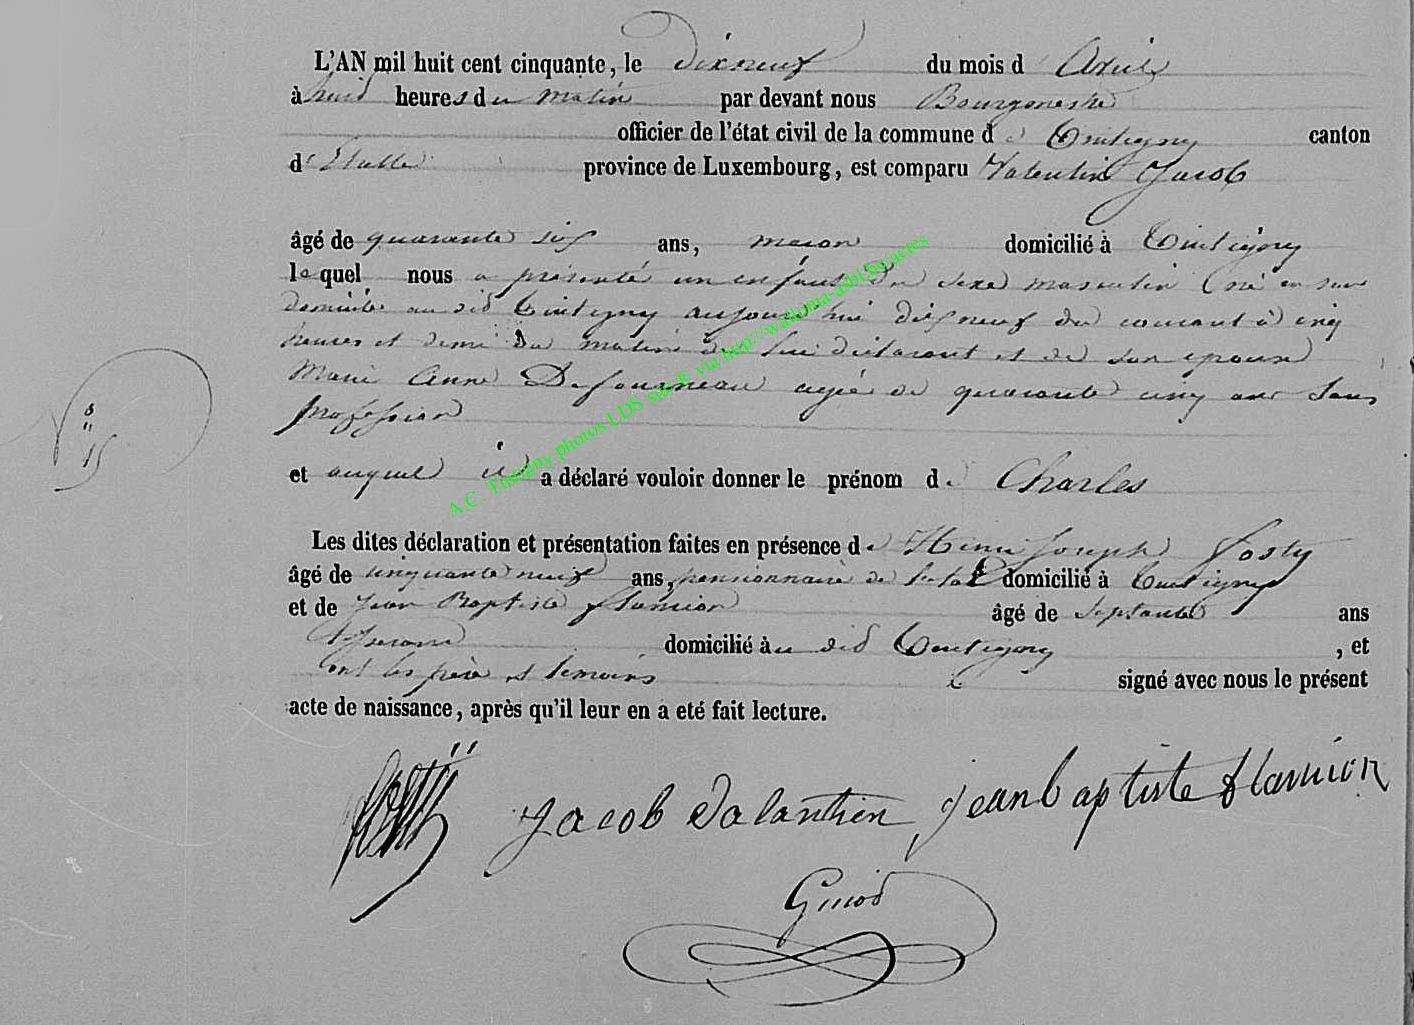 L'AN mil huit cent cinquante, le dixneuf du mois d'Avril
à huit heures du matin par devant nous Bourgmestre
officier de l'état civil de la commune de Tintigny canton
d'Etalle province de Luxembourg, est comparu Valentin Jacob
âgé de quarante six ans, macon domicilié à Tintigny
lequel nous a présenté un enfant du sexe masculin né en son
domicile au did Tintigny aujourd'hui dixneuf du courant à cinq
heures et demi du matin de lui déclarant et de son épouse
Marie Anne Defourneau agée de quarante cinq ans sans
profession
et auquel il a déclaré vouloir donner le prénom de Charles
Les dites déclaration et présentation faites en présence de Henri Joseph Fosty
âgé de cinquante neuf ans, pensionnaire de l'etat domicilié à Tintigny
et de Jean Baptiste flamion âgé de septante ans
domicilié au did Tintigny, et
ont les père et témoins signé avec nous le présent
acte de naissance, après qu'il leur en a eté fait lecture.
Jacob Valantien jeanbaptiste flamion
A.C. Tintigny photos LDS sprl © via http://wallonia-asbl.be/actes